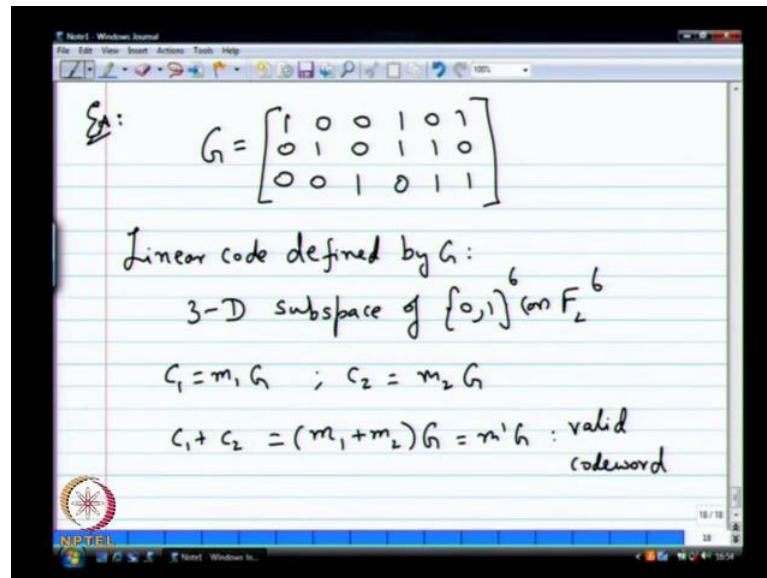 Note1 - Windows Journal
File Edit View Insert Actions Tools Help
100%
Ex:
G = [1 0 0 1 0 1
0 1 0 1 1 0
0 0 1 0 1 1]
Linear code defined by G:
3-D subspace of {0,1}^6 (or) F_2^6
C_1 = m_1 G ; C_2 = m_2 G
C_1 + C_2 = (m_1 + m_2) G = m' G : valid
codeword
18 / 18
18
NPTEL
Note1 - Windows Jo...
16:54